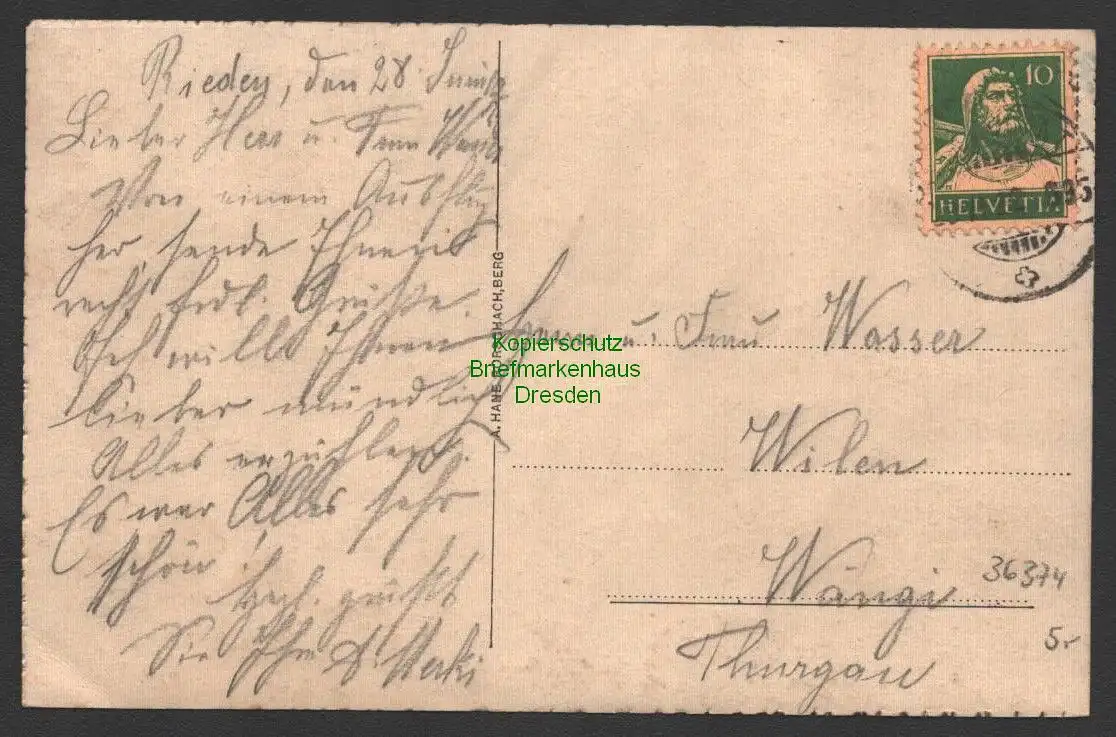 Rieden, den 28. Juni
Lieber Herr u. Frau
Von einem Ausflug
her, sende Ihnen
recht frdl. Grüsse.
Ich will Ihnen
lieber mündlich
Alles erzählen.
Es war Alles sehr
schön!
Herzl. grüsst
Sie Ihr
A. HANE RORSCHACH, BERG
10
HELVETIA
Herrn u. Frau Wasser
Wilen
Wängi
Thurgau
36374
5.-
Kopierschutz
Briefmarkenhaus
Dresden